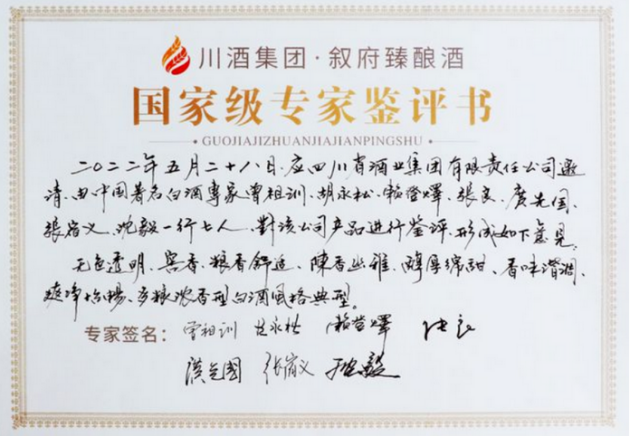 川酒集团·叙府臻酿酒
国家级专家鉴评书
GUOJIAJIZHUANJIAJIANPINGSHU
二〇二二年五月二十八日,应四川省酒业集团有限责任公司邀
请,由中国著名白酒专家曾祖训、胡永松、赖登燡、张良、庹先国、
张宿义、沈毅一行七人,對该公司产品进行鉴评,形成如下意见:
无色透明、窖香、粮香舒适、陳香幽雅、醇厚绵甜、香味谐调、
爽净怡畅、多粮浓香型白酒风格典型。
专家签名:曾祖训 胡永松 赖登燡 张良
庹先國 张宿义 沈毅